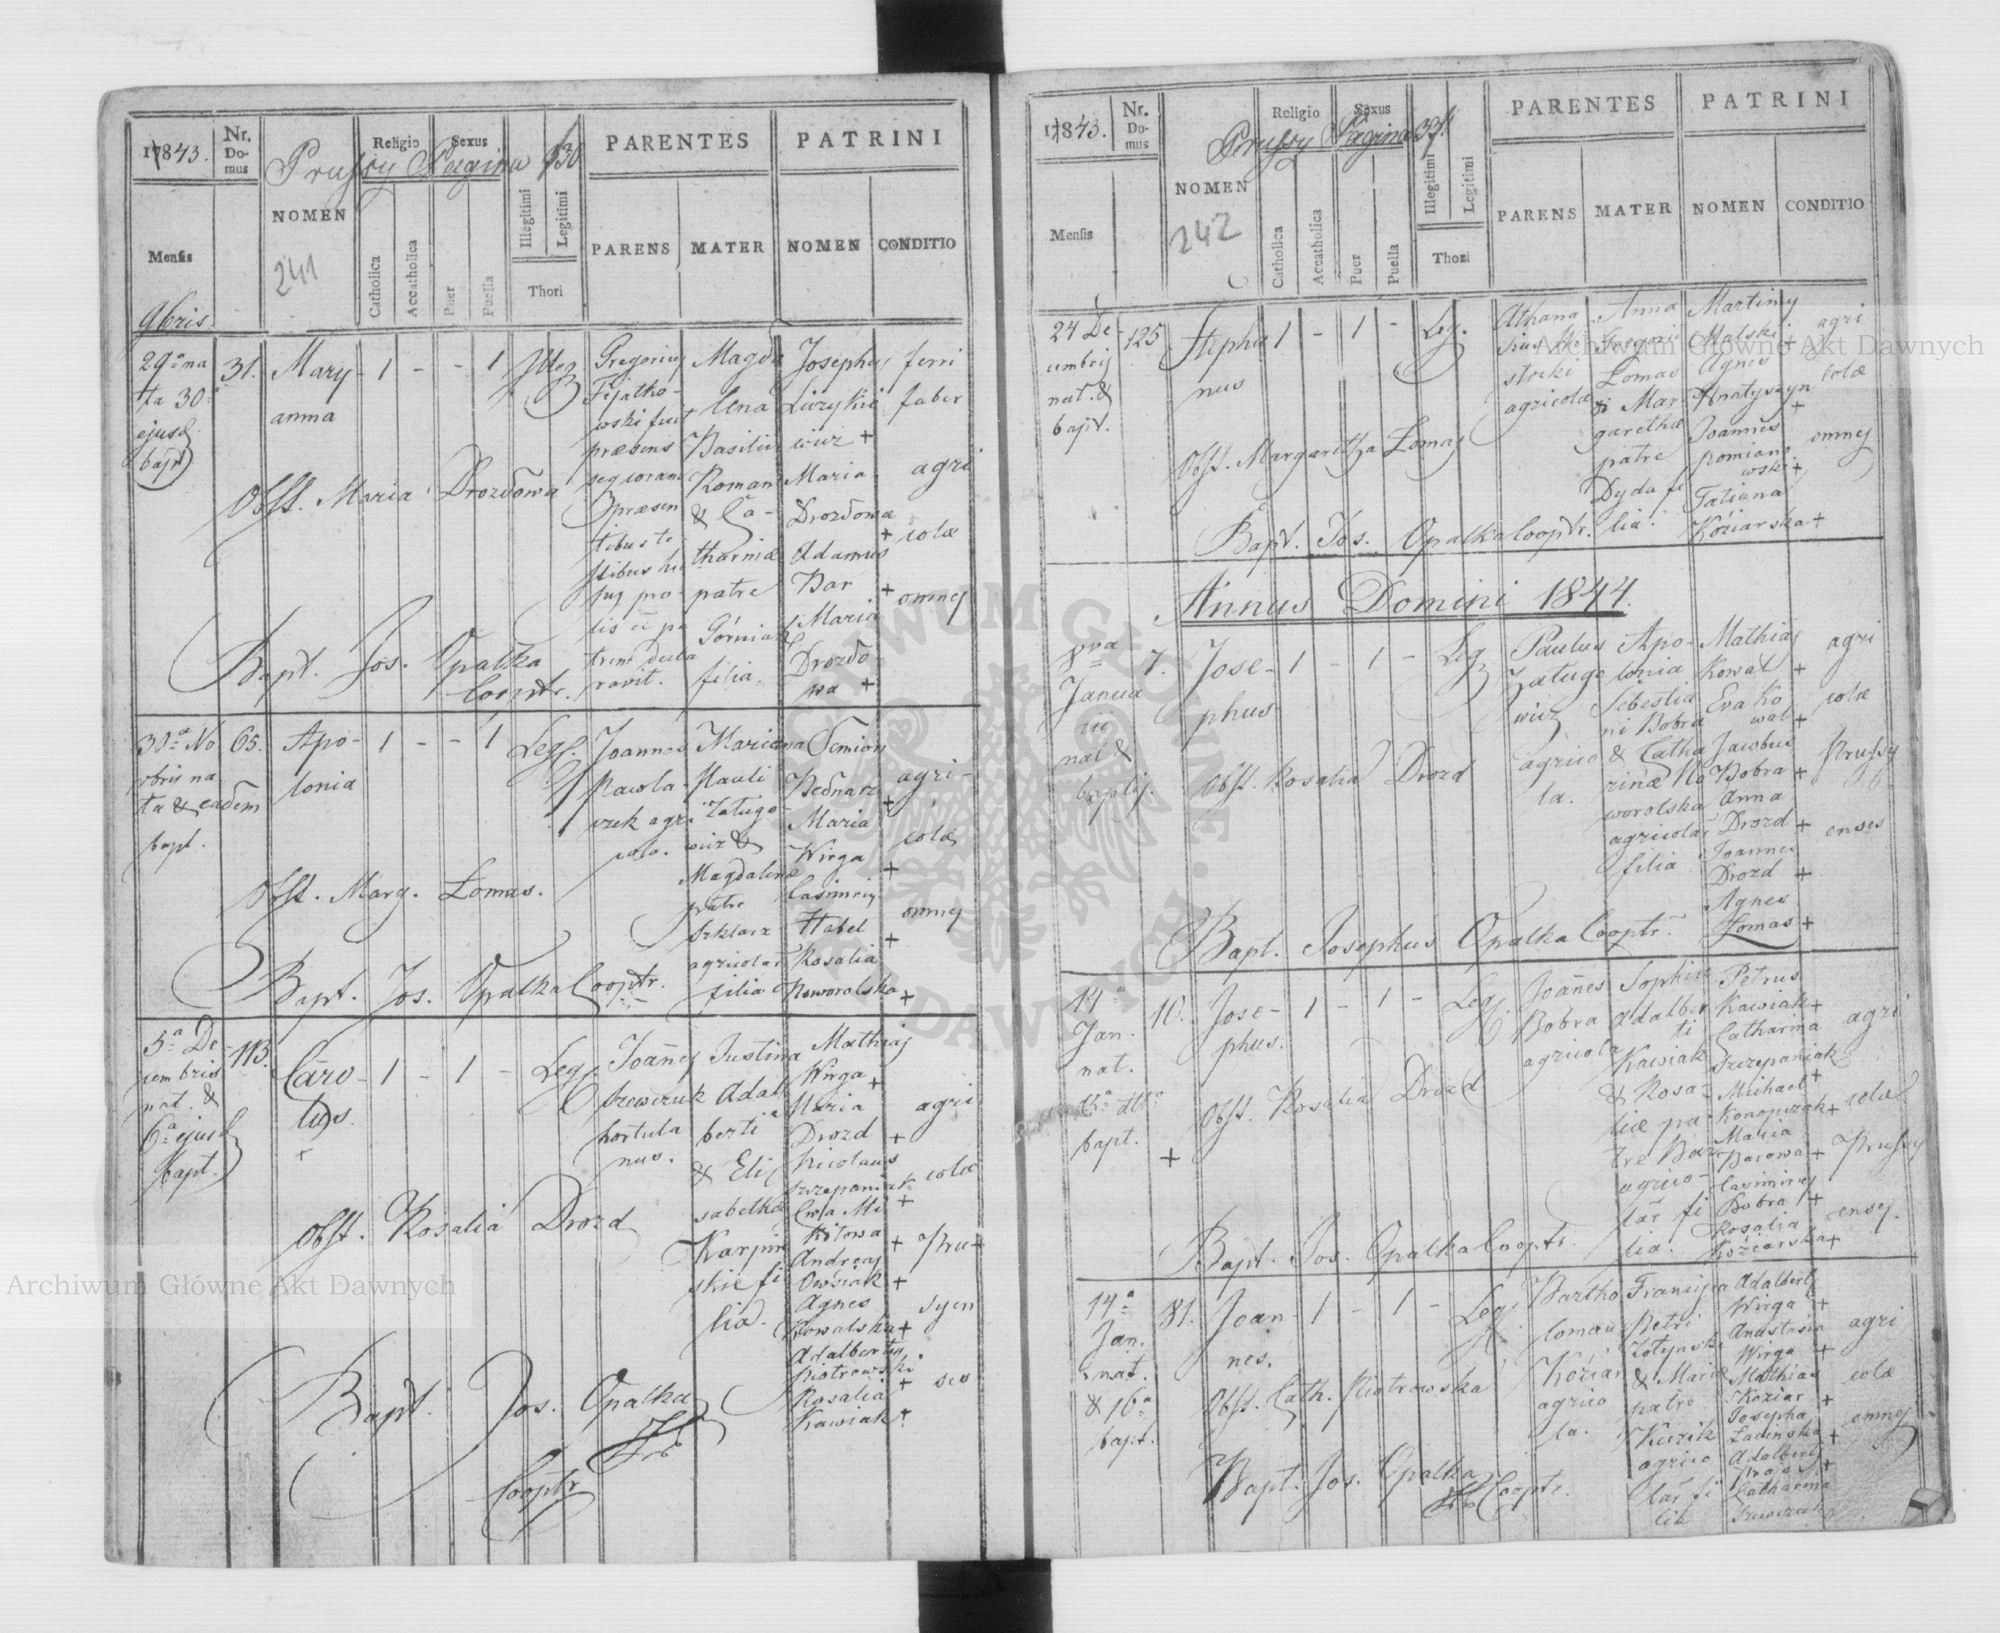 1843.
Nr. Domus
Prussy Pagina 330
Religio
Sexus
PARENTES
PATRINI
Mensis
NOMEN
241
Catholica
Accatholica
Puer
Puella
Illegitimi
Legitimi
Thori
PARENS
MATER
NOMEN
CONDITIO
9bris
29a na
ta 30a
ejusd.
bapt
31.
Mary-
anna
1 - - 1
Illeg
Gregorius
Fijałko-
wski fuit
præsens
seq coram
præsen
tibus te
stibus hu
jus pro-
lis
Magda
lena
Basilii
Roman
& Ca-
tharinæ
patre
Górniak
filia.
Josephus
Liczykie
wicz +
Maria
Drozdowa
+
Adamus
Bar +
Maria
Drozdo
wa +
ferri
faber
agri
colæ
omnes
Obst. Maria Drozdowa
Bapt. Jos. Opałka
Cooptr.
30a No
vbris na
ta & eadem
bapt.
65.
Apo-
lonia
1 - - 1
Leg.
Joannes
Pawla-
czek agri
cola.
Marianna
Pauli
Załugo-
wicz &
Magdalenæ
patre
Szklarz
agricolar
filia
Semion
Bednarz
+
Maria
Wirga
+
Casimirus
Habel
+
Rosalia
Koworolska +
agri-
colæ
omnes
Obst. Marg. Łomas.
Bapt. Jos. Opałka Cooptr.
5a De-
cembris
nat. &
6a ejusd
bapt.
113.
Caro-
lus.
+
1 - 1 -
Leg.
Joañes
Szewczuk
hortula
nus.
Justina
Adal
berti
& Eli
sabethæ
Karpin
skie fi
lia.
Mathias
Wirga +
Maria
Drozd +
Nicolaus
Szczepaniak
+
Eva Mi
kitowa +
Andreas
Owsiak +
Agnes
Kowalska +
Adalbertus
Piotrowski
+
Rosalia
Kawiak +
agri
colæ
Pru-
syen
ses
Obst. Rosalia Drozd
Bapt. Jos. Opałka
Cooptr
1843.
Nr. Domus
Prussy Pagina 331
Religio
Sexus
PARENTES
PATRINI
Mensis
NOMEN
242
Catholica
Accatholica
Puer
Puella
Illegitimi
Legitimi
Thori
PARENS
MATER
NOMEN
CONDITIO
24 De-
cembris
nat. &
bapt.
125
Stepha
nus
1 - 1 -
Leg.
Athana
sius Wi
stocki
agricola
Anna
Gregorii
Łomas
& Mar
garethæ
patre
Dyda fi
lia.
Martinus
Malski +
Agnes
Hnatyszyn
+
Joannes
Pomiano
wski +
Tatiana
Koziarska +
agri
colæ
omnes
Obst. Margaritha Łomas
Bapt. Jos. Opałka Cooptr.
Annus Domini 1844.
1ma
Janua
rii
nat &
baptis.
7.
Jose-
phus
1 - 1 -
Leg
Paulus
Załugo
wicz
agrico
la.
Apo-
lonia
Sebestia
ni Bobra
& Catha
rinæ Ko
worolska
agricolar
filia
Mathias
Kowal +
Eva Ko
wal +
Jacobus
Bobra +
Anna
Drozd +
Joannes
Drozd +
Agnes
Łomas +
agri
colæ
Prussy
enses
Obst. Rosalia Drozd
Bapt. Josephus Opałka Cooptr.
14a
Jan.
nat.
15a dtto
bapt.
+
10.
Jose-
phus.
1 - 1 -
Leg.
Joañes
Bobra
agricola
Sophia
Adalber
ti
Kawiak
& Rosa-
liæ pa
tre Bar
agrico-
lar fi
lia.
Petrus
Kawiak +
Catharina
Szczepaniak
+
Michael
Konopczak +
Maria
Barowa +
Casimirus
Bobra +
Rosalia
Koziarska +
agri
colæ
Prussy
enses.
Obst. Rosalia Drozd
Bapt. Jos. Opałka Cooptr.
14a
Jan.
nat.
& 16a
bapt.
81.
Joan-
nes.
1 - 1 -
Leg.
Bartho
lomæus
Koziar
agrico
la.
Francisca
Petri
& Mariæ
patre
agrico
lar fi
lia
Adalbertus
Wirga +
Anastasia
Wirga +
Mathias
Koziar +
Josepha
+
Adalbertus
+
Catharina
Szewczuk
agri
colæ
omnes
Obst. Cath. Piotrowska
Bapt. Jos. Opałka
Cooptr.
Archiwum Główne Akt Dawnych
Archiwum Główne Akt Dawnych
ARCHIWUM GŁÓWNE AKT DAWNYCH